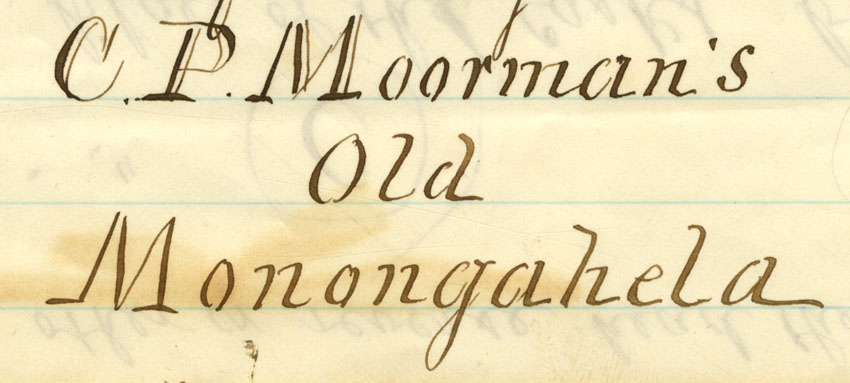 C. P. Moorman's
Old
Monongahela